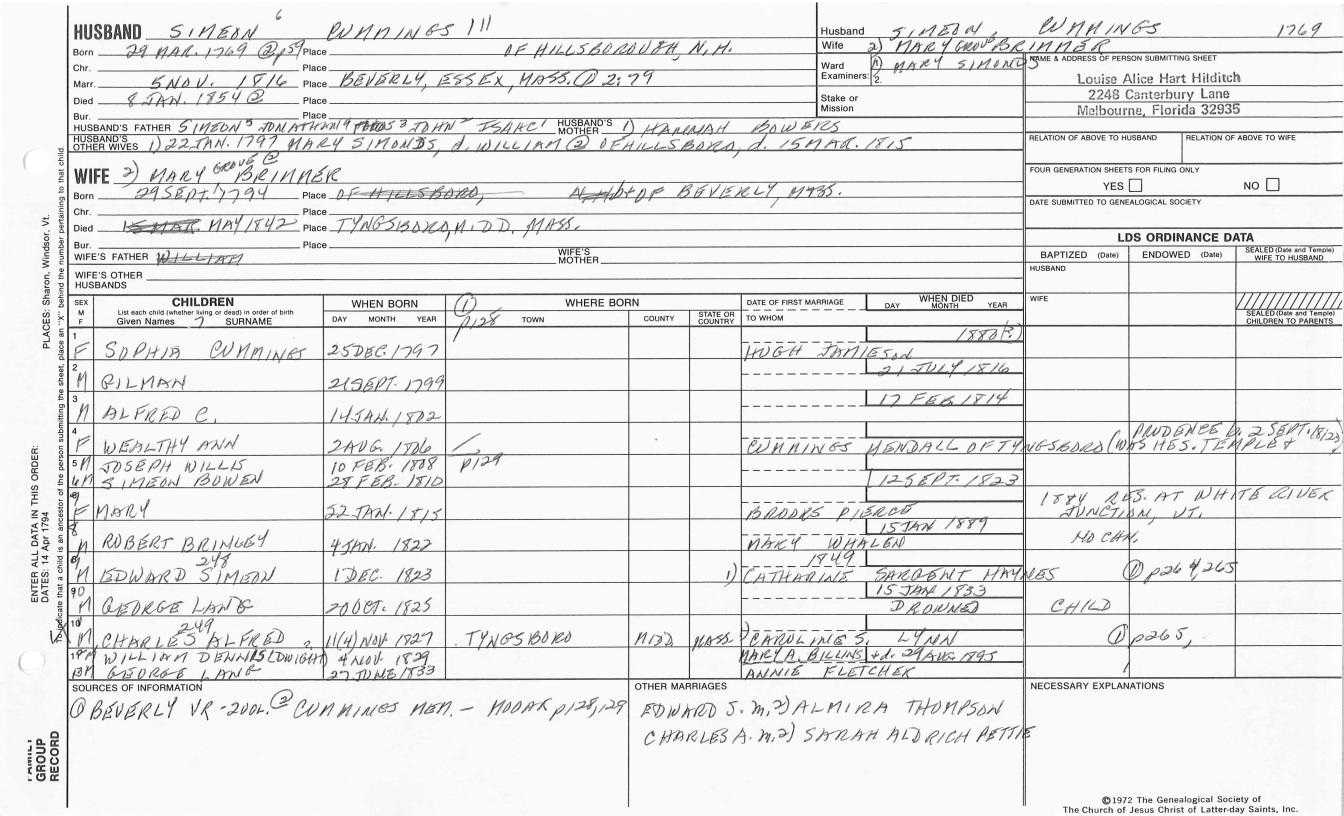 HUSBAND SIMEON 6 CUMMINGS III
Born 29 MAR. 1769 @ p59 Place OF HILLSBOROUGH, N.H.
Chr. Place
Marr. 5 NOV. 1816 Place BEVERLY, ESSEX, MASS. ① 2:79
Died 8 JAN. 1854 ② Place
Bur. Place
HUSBAND'S FATHER SIMEON 5 JONATHAN 4 3 JOHN 2 ISAAC 1 HUSBAND'S MOTHER 1) HANNAH BOWERS
HUSBAND'S OTHER WIVES 1) 22 JAN. 1797 MARY SIMONDS, d. WILLIAM (2) OF HILLSBORO, d. 15 MAR. 1815
Husband SIMEON, CUMMINGS 1769
Wife 2) MARY GROVE BRIMMER
Ward 1) MARY SIMONDS
Examiners: 1. 2.
Stake or Mission
NAME & ADDRESS OF PERSON SUBMITTING SHEET
Louise Alice Hart Hilditch
2248 Canterbury Lane
Melbourne, Florida 32935
RELATION OF ABOVE TO HUSBAND RELATION OF ABOVE TO WIFE
FOUR GENERATION SHEETS FOR FILING ONLY
YES NO
DATE SUBMITTED TO GENEALOGICAL SOCIETY
WIFE 2) MARY GROVE ② BRIMMER
Born 29 SEPT. 1794 Place OF HILLSBORO, N.H. OF BEVERLY MASS.
Chr. Place
Died 15 MAR. MAY 1842 Place TYNGSBORO, MIDD. MASS.
Bur. Place
WIFE'S FATHER WILLIAM WIFE'S MOTHER
WIFE'S OTHER HUSBANDS
LDS ORDINANCE DATA
BAPTIZED (Date) ENDOWED (Date) SEALED (Date and Temple) WIFE TO HUSBAND
HUSBAND
WIFE
SEALED (Date and Temple) CHILDREN TO PARENTS
SEX M F CHILDREN List each child (whether living or dead) in order of birth Given Names 7 SURNAME WHEN BORN DAY MONTH YEAR ① p128 WHERE BORN TOWN COUNTY STATE OR COUNTRY DATE OF FIRST MARRIAGE TO WHOM WHEN DIED DAY MONTH YEAR
1 F SOPHIA CUMMINGS 25 DEC. 1797 HUGH JAMIESON 1880(?)
2 M GILMAN 21 SEPT. 1799 21 JULY 1816
3 M ALFRED C. 14 JAN. 1802 17 FEB. 1814
4 F WEALTHY ANN 2 AUG. 1806 CUMMINGS MENDALL OF TYNGSBORO (WAS H ES. TEMPLE & PRUDENCE b. 2 SEPT.
5 M JOSEPH WILLIS 10 FEB. 1808 p129
6 M SIMEON BOWEN 28 FEB. 1810 12 SEPT. 1823
7 F MARY 22 JAN. 1815 BROOKS PIERCE 1884 RES. AT WHITE RIVER JUNCTION, VT.
8 M ROBERT BRINLEY 4 JAN. 1822 MARY WHALEN 15 JAN 1889 NO CAN.
9 M EDWARD 248 SIMEON 1 DEC. 1823 1849 1) CATHARINE SARGENT HAYNES ① p264,265
10 M GEORGE LANG 20 OCT. 1825 15 JAN 1833 DROWNED CHILD
M CHARLES 249 ALFRED ? 11(4) NOV. 1827 TYNGSBORO MIDD MASS 1) CAROLINE S. LYNN ① p265,
M WILLIAM DENNIS (DWIGHT) 4 NOV. 1829 MARY A. BILLINS + d. 29 AUG 1895
13 M GEORGE LANG 27 JUNE 1833 ANNIE FLETCHER
SOURCES OF INFORMATION
① BEVERLY VR - 2 vol. ② CUMMINGS MEM. - MOOAR p128,129
OTHER MARRIAGES
EDWARD S. m. 2) ALMIRA THOMPSON
CHARLES A. m. 2) SARAH ALDRICH PETTIE
NECESSARY EXPLANATIONS
©1972 The Genealogical Society of
The Church of Jesus Christ of Latter-day Saints, Inc.
FAMILY GROUP RECORD
ENTER ALL DATA IN THIS ORDER:
DATES: 14 Apr 1794
PLACES: Sharon, Windsor, Vt.
To indicate that a child is an ancestor of the person submitting the sheet, place an "X" behind the number pertaining to that child.